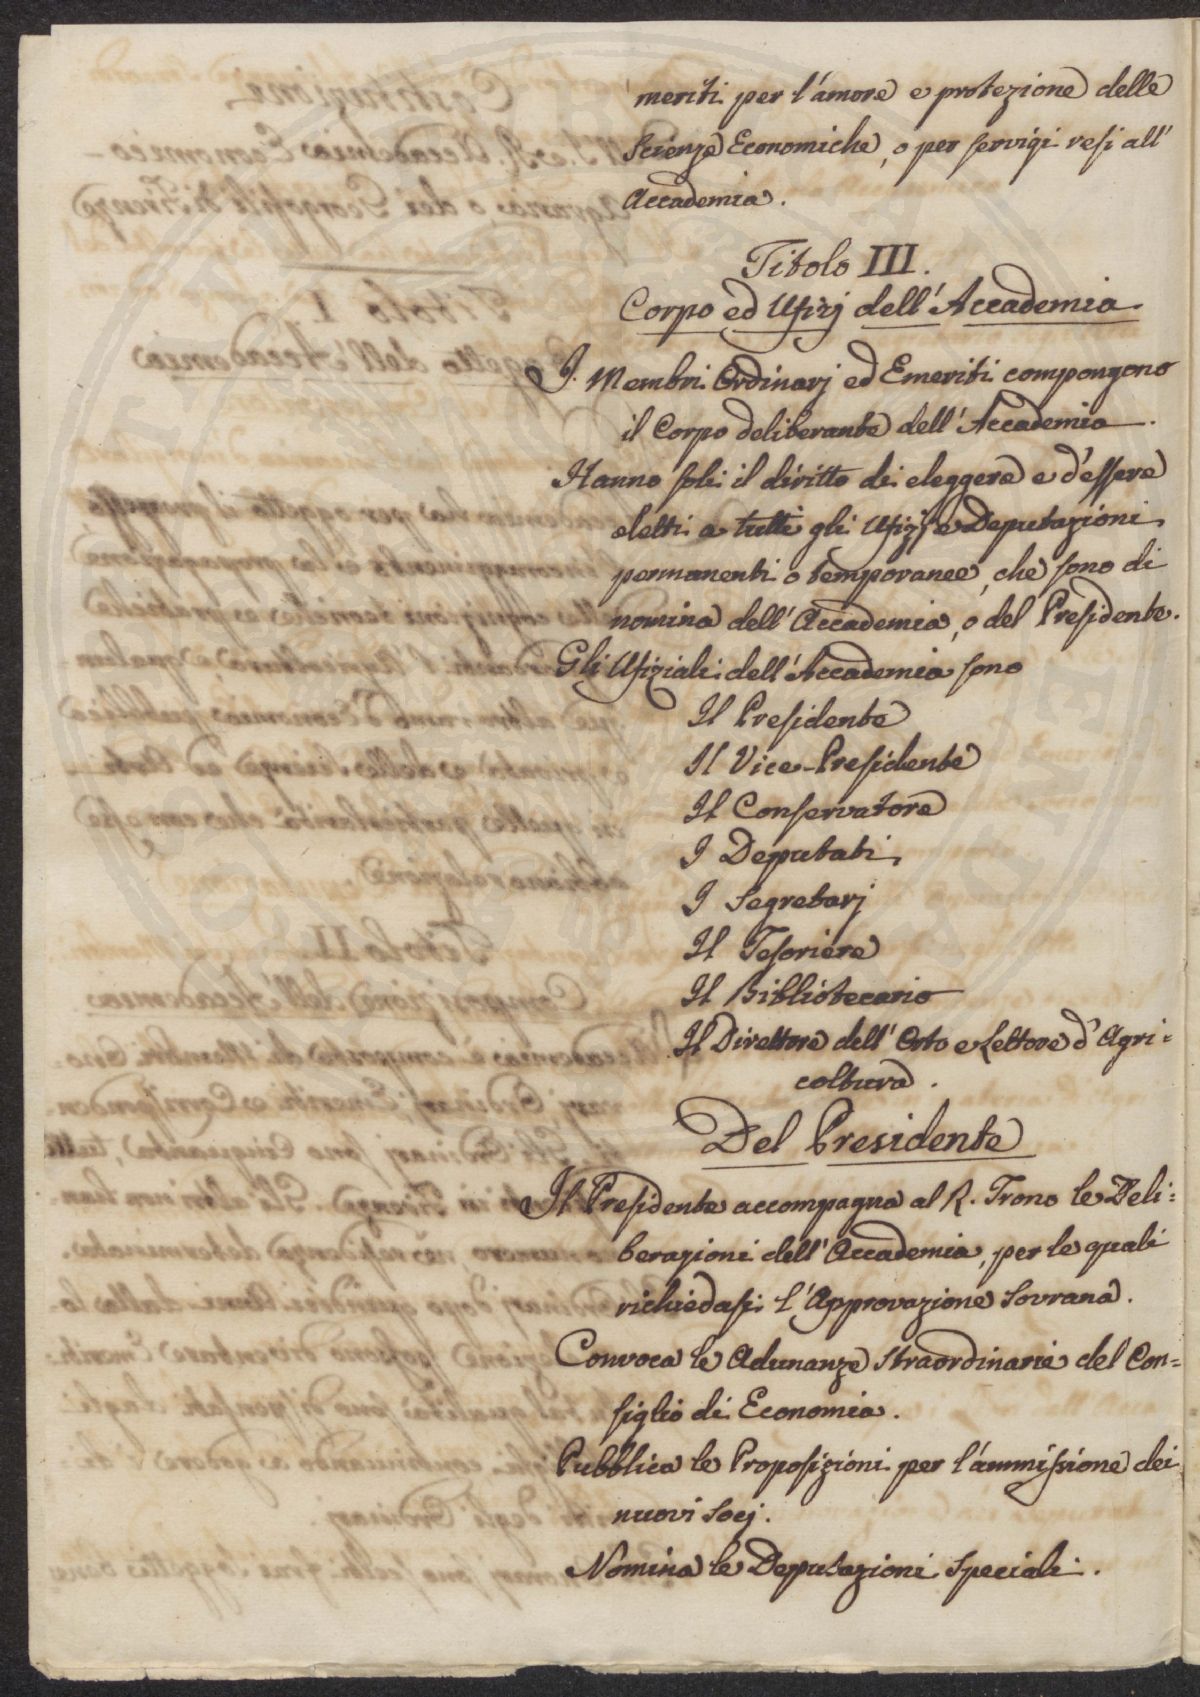 meriti per l'amore e protezione delle
Scienze Economiche, o per servigi resi all'
Accademia.
Titolo III.
Corpo ed Ufizj dell'Accademia
I. Membri Ordinarj ed Emeriti compongono
il Corpo deliberante dell'Accademia.
Hanno soli il diritto di eleggere e d'essere
eletti a tutti gli Ufizj e Deputazioni
permanenti o temporanee, che sono di
nomina dell'Accademia, o del Presidente.
Gli Ufiziali dell'Accademia sono
Il Presidente
Il Vice-Presidente
Il Conservatore
I Deputati
I Segretarj
Il Tesoriere
Il Bibliotecario
Il Direttore dell'Orto e Lettore d'Agri=
coltura.
Del Presidente
Il Presidente accompagna al R. Trono le Deli=
berazioni dell'Accademia, per le quali
richiedasi l'Approvazione Sovrana.
Convoca le Adunanze Straordinarie del Con=
siglio di Economia.
Pubblica le Proposizioni per l'ammissione dei
nuovi Socj.
Nomina le Deputazioni Speciali.